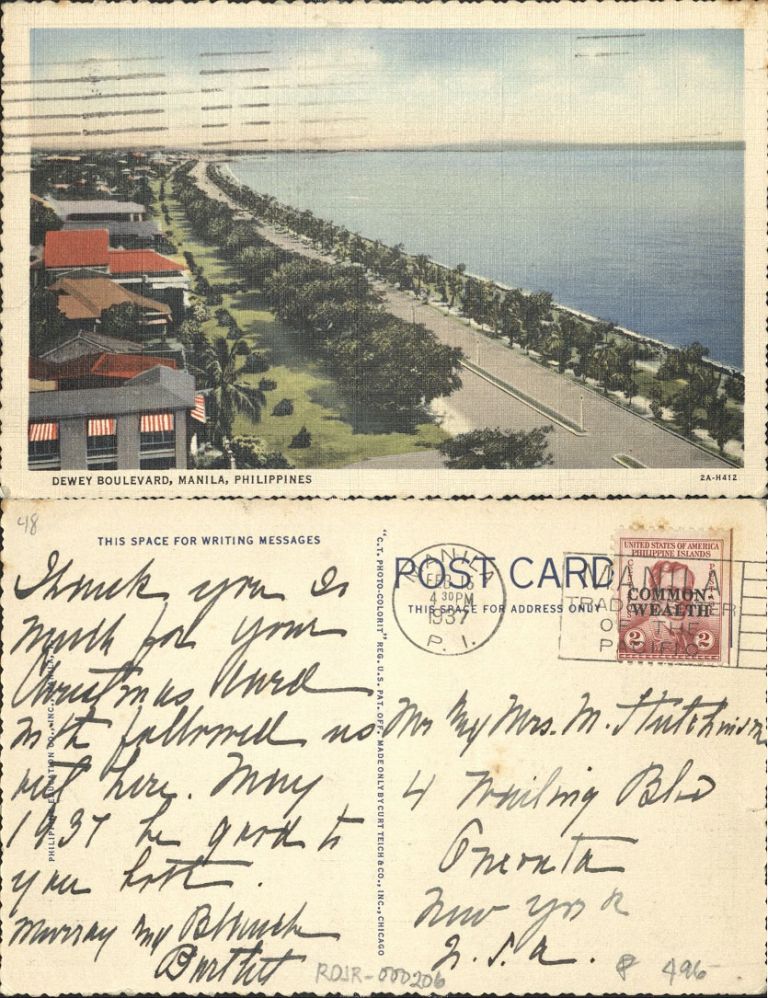 DEWEY BOULEVARD, MANILA, PHILIPPINES
2A-H412
48
THIS SPACE FOR WRITING MESSAGES
Thank you so
much for your
Christmas Card
followed us
out here. May
1937 be good to
you both.
Murray and Blanche
Bartlett
PHILIPPINE EDUCATION CO., INC., MANILA
"C.T. PHOTO-COLORIT" REG. U.S. PAT. OFF. MADE ONLY BY CURT TEICH & CO., INC., CHICAGO
POST CARD
THIS SPACE FOR ADDRESS ONLY
MANILA
FEB 6
4 30 PM
1937
P. I.
MANILA
TRADE CENTER
OF THE
PACIFIC
UNITED STATES OF AMERICA
PHILIPPINE ISLANDS
COMMON-
WEALTH
2 2
Mr and Mrs. M. Hutchinson
4 Blo
Oneonta
New York
U.S.A.
RDJR-000206
P 496